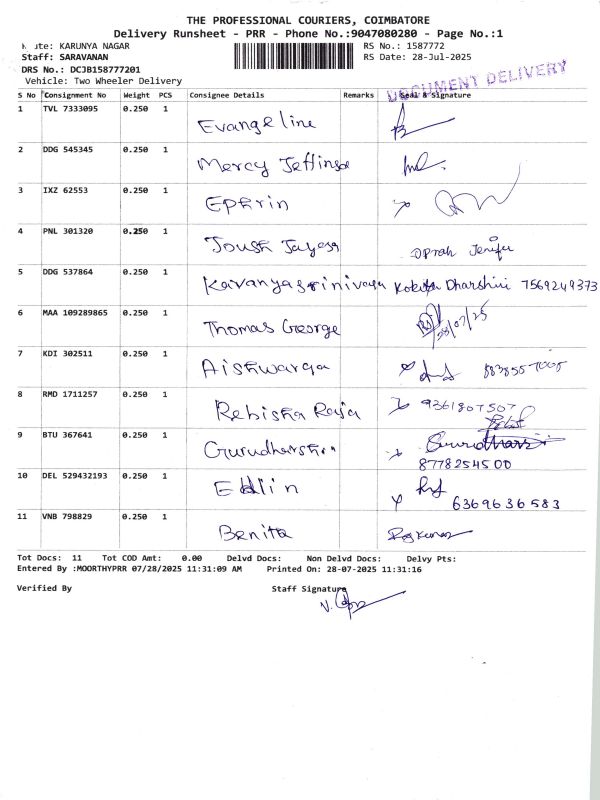 THE PROFESSIONAL COURIERS, COIMBATORE
Delivery Runsheet - PRR - Phone No.:9047080280 - Page No.:1
Route: KARUNYA NAGAR RS No.: 1587772
Staff: SARAVANAN RS Date: 28-Jul-2025
DRS No.: DCJB158777201
Vehicle: Two Wheeler Delivery
DOCUMENT DELIVERY
S No Consignment No Weight PCS Consignee Details Remarks Seal & Signature
1 TVL 7333095 0.250 1 Evangeline
2 DDG 545345 0.250 1 Mercy Jeffinsa
3 IXZ 62553 0.250 1 Ephrin
4 PNL 301320 0.250 1 Joush Jayasa Oprah Jenifer
5 DDG 537864 0.250 1 Kavanyasrinivaya Kokila Dharshini 7569249373
6 MAA 109289865 0.250 1 Thomas George 28/07/25
7 KDI 302511 0.250 1 Aishwarya
8 RMD 1711257 0.250 1 Rebisha Raja 9361807507
9 BTU 367641 0.250 1 Gurudharshn Gurudharsh
8778254500
10 DEL 529432193 0.250 1 Edlin
6369636583
11 VNB 798829 0.250 1 Benita Rajkumar
Tot Docs: 11 Tot COD Amt: 0.00 Delvd Docs: Non Delvd Docs: Delvy Pts:
Entered By :MOORTHYPRR 07/28/2025 11:31:09 AM Printed On: 28-07-2025 11:31:16
Verified By Staff Signature